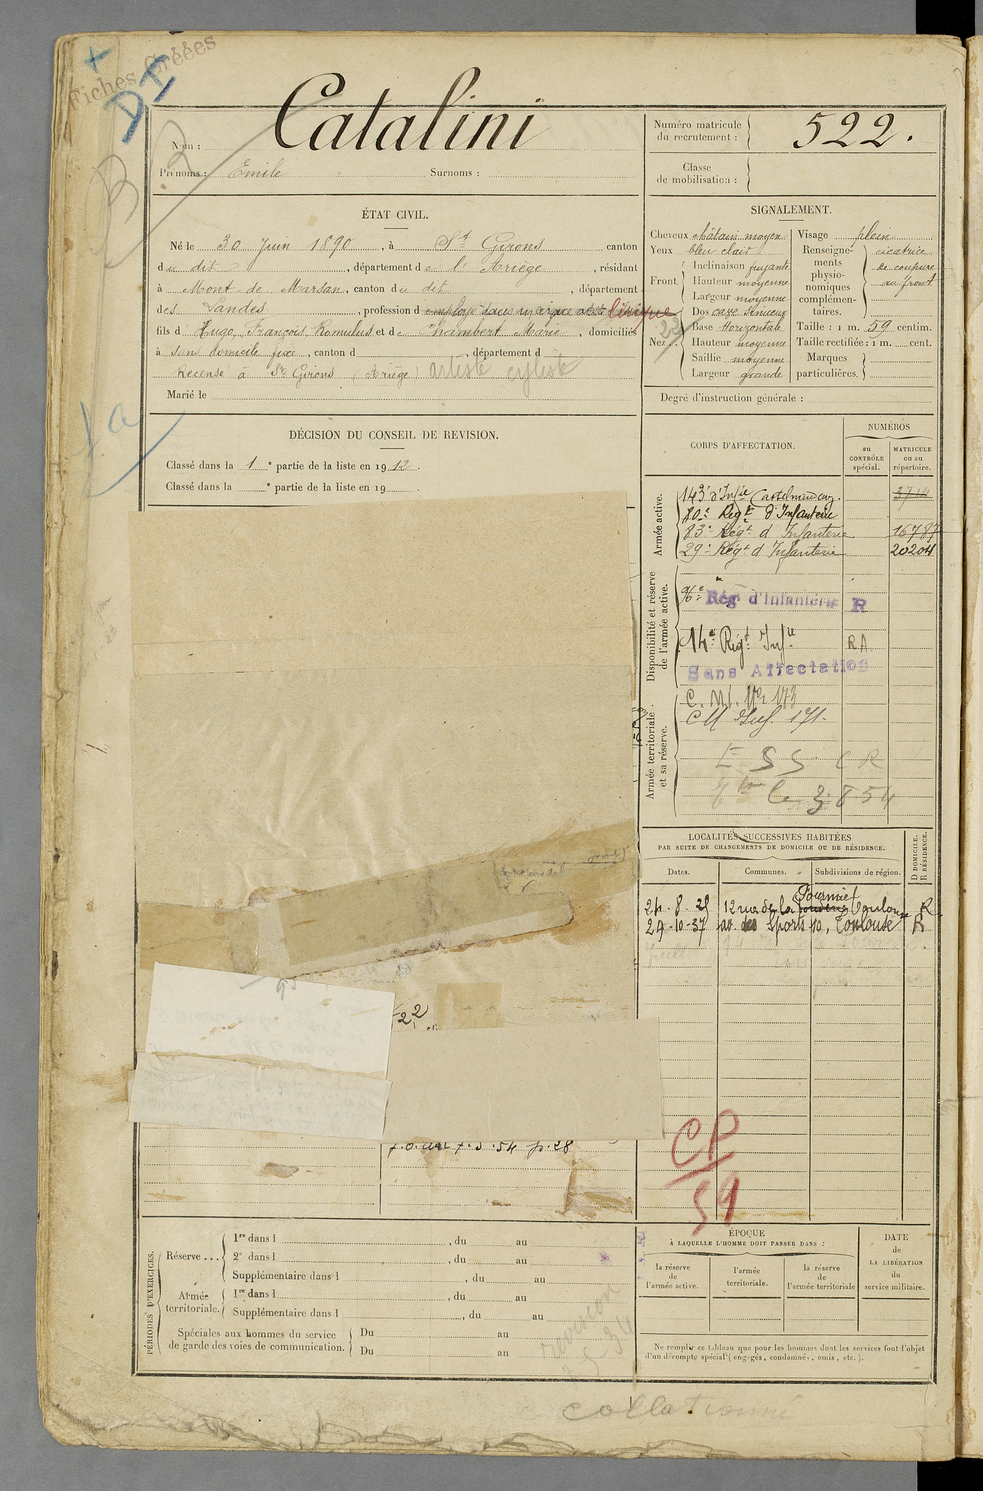 Fiches Créées
DI
B 2
Nom : Catalini
Prénoms : Emile Surnoms :
Numéro matricule du recrutement : 522.
Classe de mobilisation :
ÉTAT CIVIL.
Né le 30 Juin 1890, à St Girons canton
du dit, département de l'Ariège, résidant
à Mont de Marsan, canton du dit, département
des Landes, profession d employé dans un cirque
fils d Hugo, François, Romulus et de Chambert Marie, domiciliés
à sans domicile fixe, canton d , département d
Recensé à St Girons (Ariège) artiste cycliste
Marié le
SIGNALEMENT.
Cheveux châtain moyen
Yeux bleu clair
Front. Inclinaison fuyante
Hauteur moyenne
Largeur moyenne
Nez. Dos cave sinueux
Base horizontale
Hauteur moyenne
Saillie moyenne
Largeur grande
Visage plein
Renseignements physionomiques complémentaires. cicatrice de coupure au front
Taille : 1 m. 59 centim.
Taille rectifiée : 1 m. cent.
Marques particulières.
Degré d'instruction générale :
DÉCISION DU CONSEIL DE REVISION.
Classé dans la 1e partie de la liste en 1912.
Classé dans la e partie de la liste en 19 .
CORPS D'AFFECTATION.
NUMÉROS
au CONTRÔLE spécial.
MATRICULE ou au répertoire.
Armée active.
143e d'Infie Castelnaudary. 3714
80e Regt d'Infanterie
83e Regt d'Infanterie 16787
29e Regt d'Infanterie 20204
Disponibilité et réserve de l'armée active.
96e Rég d'Infanterie R
14e Régt Infie RA
Sans Affectation
Armée territoriale et sa réserve.
C. M. I. No 173
CM Inf. 171.
LOCALITÉS SUCCESSIVES HABITÉES
PAR SUITE DE CHANGEMENTS DE DOMICILE OU DE RÉSIDENCE.
Dates. Communes. Subdivisions de région. D DOMICILE. R RÉSIDENCE.
24.8.28 12 rue de la Toulouse R
29-10-37 av. des Sports 10, Toulouse R
CP
59
PÉRIODES D'EXERCICES.
Réserve ...
1re dans l , du au
2e dans l , du au
Supplémentaire dans l , du au
Armée territoriale.
1re dans l , du au
Supplémentaire dans l , du au
Spéciales aux hommes du service de garde des voies de communication.
Du au
Du au
ÉPOQUE
À LAQUELLE L'HOMME DOIT PASSER DANS :
la réserve de l'armée active.
l'armée territoriale.
la réserve de l'armée territoriale
DATE de LA LIBÉRATION du service militaire.
Ne remplir ce tableau que pour les hommes dont les services font l'objet
d'un décompte spécial (engagés, condamnés, omis, etc.).
collationné